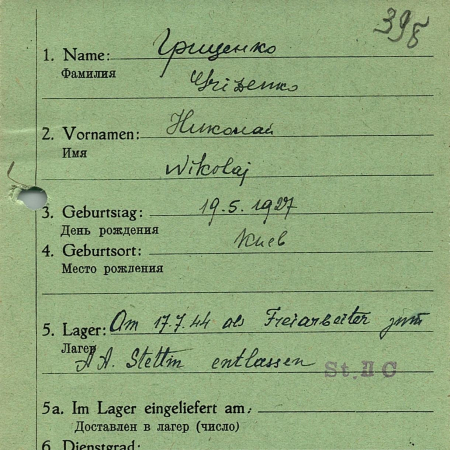 398
1. Name: Грищенко
Фамилия
Grizenko
2. Vornamen: Николай
Имя
Nikolaj
3. Geburtstag: 19.5.1927
День рождения
4. Geburtsort: Киев
Место рождения
5. Lager: Am 17.7.44 als Freiarbeiter zum
Лагер
A.A. Stettin entlassen St. II C
5a. Im Lager eingeliefert am:
Доставлен в лагер (число)
6. Dienstgrad: